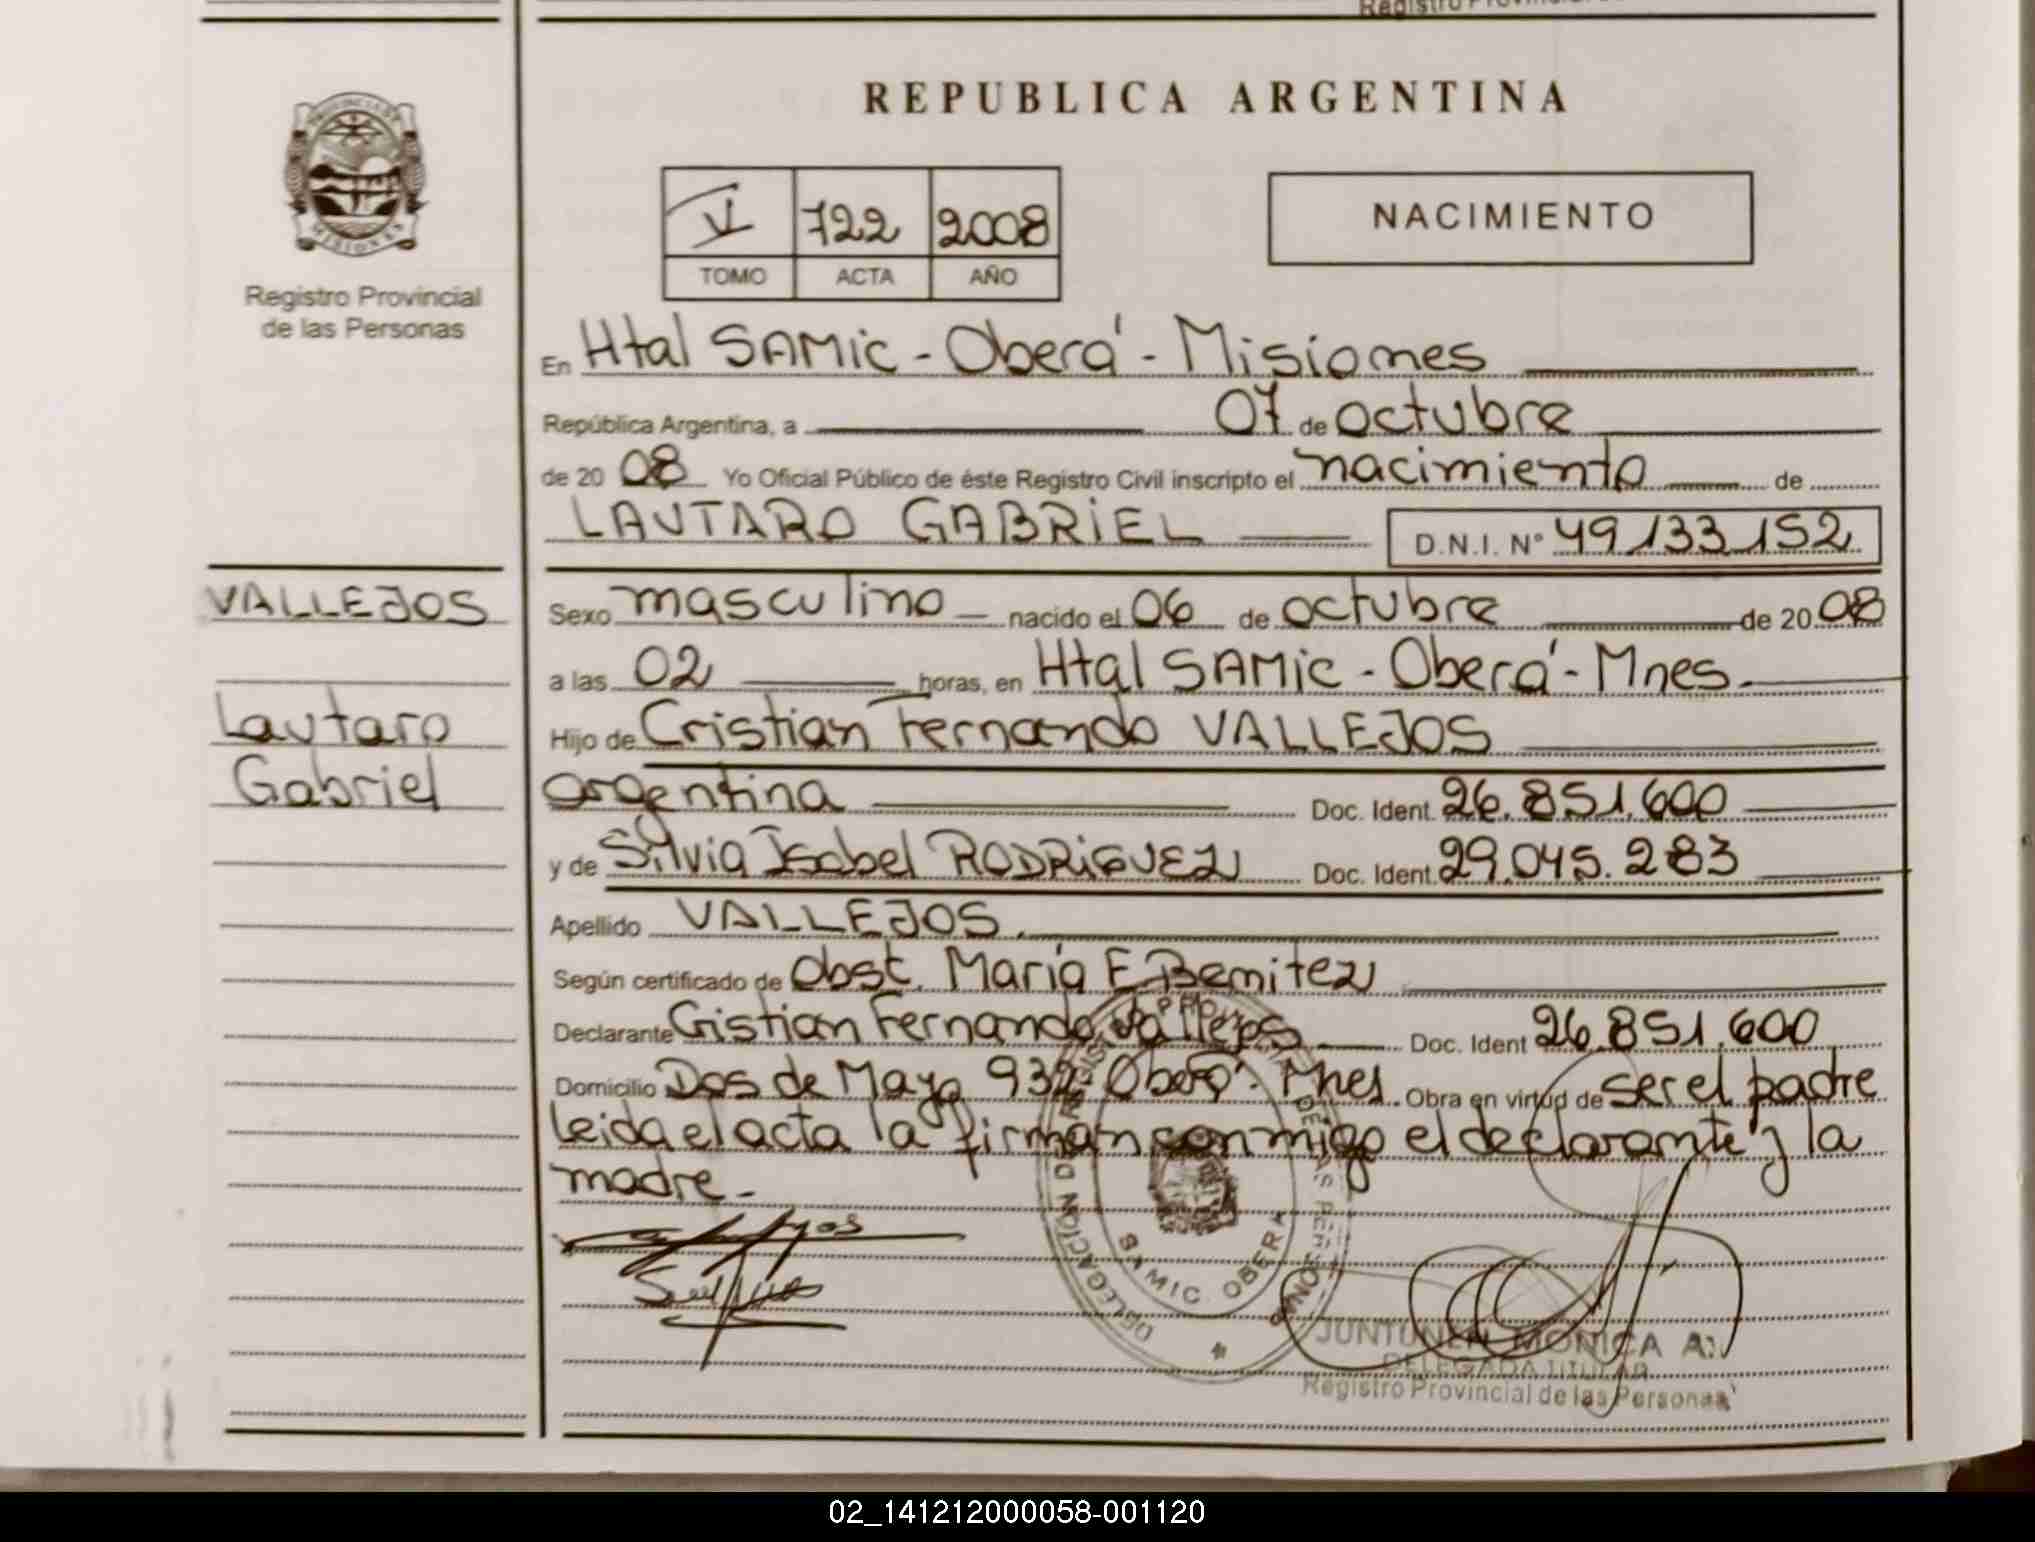 Registro Provincial
REPUBLICA ARGENTINA
PROVINCIA DE
MISIONES
Registro Provincial
de las Personas
V 722 2008
TOMO ACTA AÑO
NACIMIENTO
En Htal SAMiC - Oberá - Misiones
República Argentina, a 07 de octubre
de 20 08 Yo Oficial Público de éste Registro Civil inscripto el nacimiento de
LAUTARO GABRiEL D.N.I. N° 49.133.152
VALLEJOS
Lautaro
Gabriel
Sexo masculino nacido el 06 de octubre de 20 08
a las 02 horas, en Htal SAMiC - Oberá - Mnes.
Hijo de Cristian Fernando VALLEJOS
argentina Doc. Ident. 26.851.600
y de Silvia Isabel RODRiGUEZ Doc. Ident. 29.045.283
Apellido VALLEJOS.
Según certificado de Obst. María E Benitez
Declarante Cristian Fernando Vallejos Doc. Ident 26.851.600
Domicilio Dos de Mayo 932 Oberá - Mnes. Obra en virtud de ser el padre
Leida el acta la firman conmigo el declarante y la
madre.-
DELEGACION REGISTRO PROVINCIAL DE LAS PERSONAS
SAMIC OBERA
JUNTUNEN MONICA A.
DELEGADA TITULAR
Registro Provincial de las Personas
02_141212000058-001120